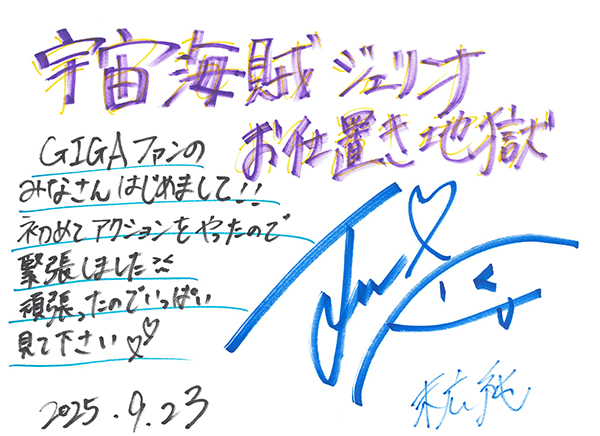 宇宙海賊ジェリオ
お仕置き地獄
GIGAファンの
みなさんはじめまして!!
初めてアクションをやったので
緊張しました
頑張ったのでいっぱい
見て下さい♡♡
Jun♡
末広純
2025.9.23